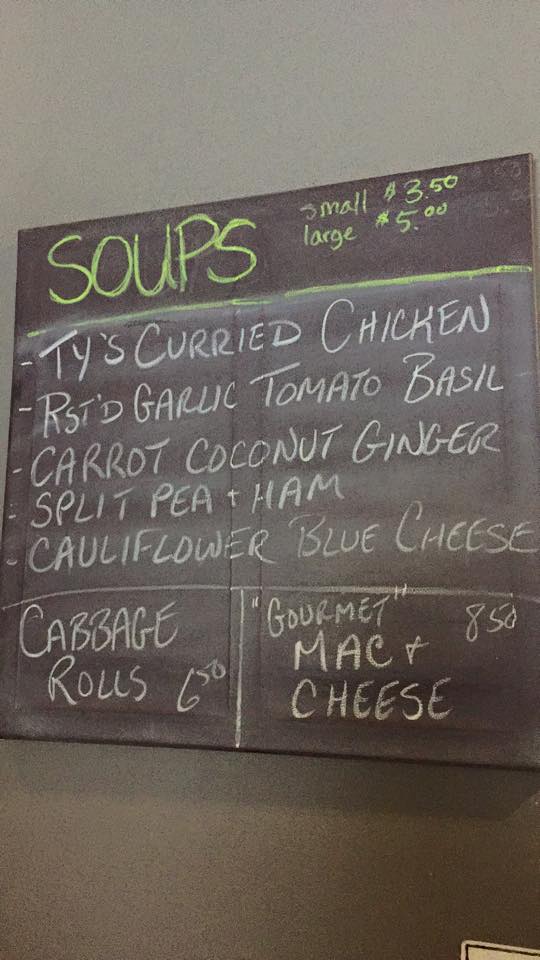 SOUPS
small $3.50
large $5.00
- TY'S CURRIED CHICKEN
- RST'D GARLIC TOMATO BASIL
- CARROT COCONUT GINGER
- SPLIT PEA + HAM
- CAULIFLOWER BLUE CHEESE
CABBAGE
ROLLS 6 50
"GOURMET" 8 50
MAC +
CHEESE